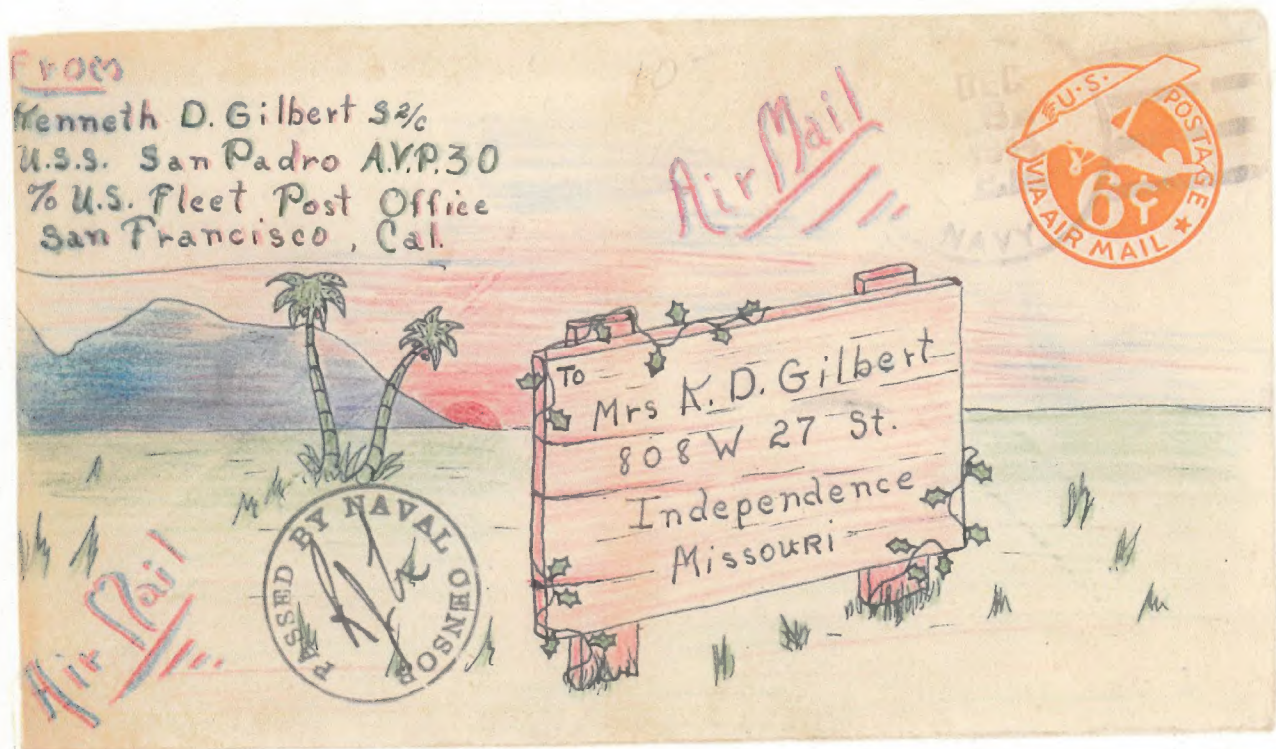 From
Kenneth D. Gilbert S2/c
U.S.S. San Padro A.V.P.30
℅ U.S. Fleet Post Office
San Francisco, Cal.
Air Mail
U.S. POSTAGE
6¢
VIA AIR MAIL
NAVY
To
Mrs K. D. Gilbert
808 W 27 St.
Independence
Missouri
PASSED BY NAVAL CENSOR
Air Mail